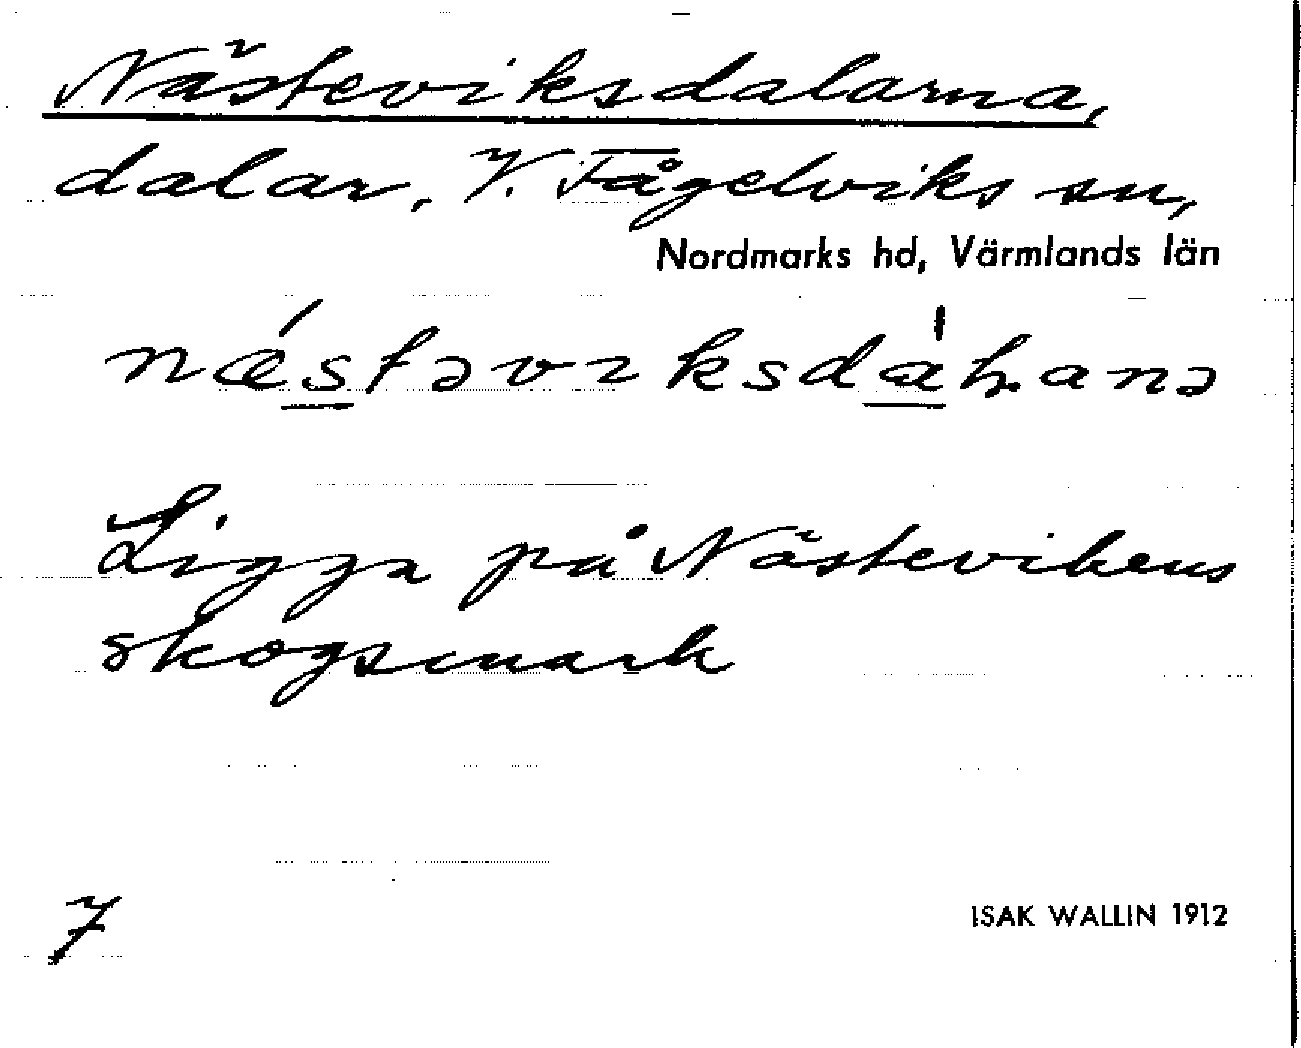 Nästeviksdalarna,
dalar, V. Fågelviks sn,
Nordmarks hd, Värmlands län
nǽstəviksdàɫ̣anə
Ligga på Nästevikens
skogsmark
7
ISAK WALLIN 1912